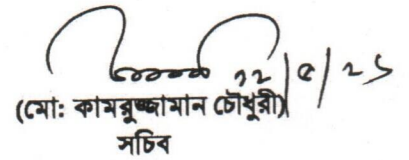 ২২/৫/২৬
(মো: কামরুজ্জামান চৌধুরী)
সচিব